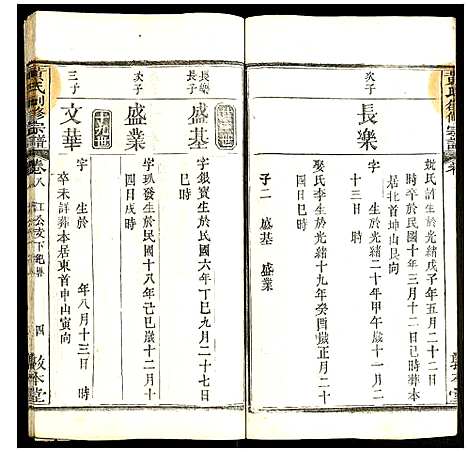 娶氏許生於光緒戊子年五月二十二日
時卒於民國十年三月十二日巳時葬本
居北首坤山艮向
次子
長樂
字 生於光緒二十年甲午六月二
十三日 時
娶氏李生於光緒十九年癸酉歲正月二十
四日巳時
子二 盛基 盛業
長樂
長子
盛基
字銀寶生於民國六年丁巳九月二十七日
巳時
次子
盛業
字玖發生於民國十八年己巳歲十二月十
四日戌時
三子
文華
字 生於 年八月十三日 時
卒未詳葬本居東首申山寅向
黃氏創修宗譜
卷八
四
敦本堂